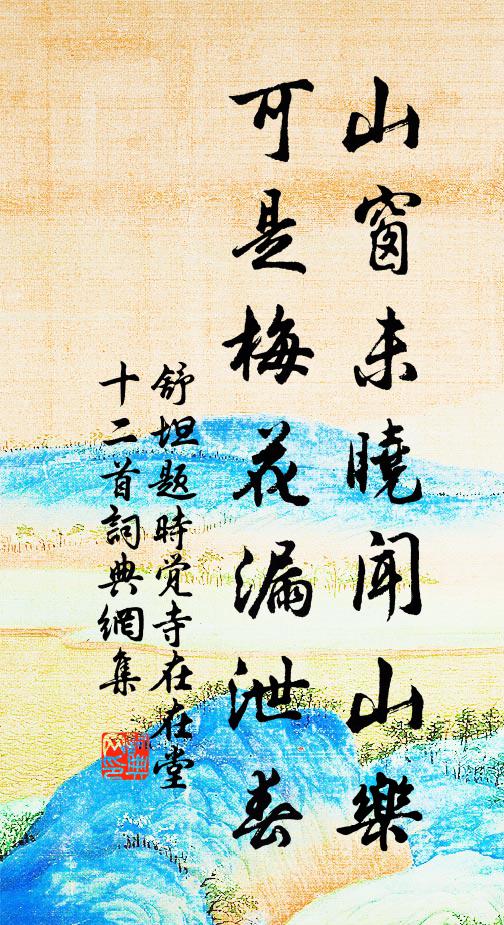 山窗未曉聞山樂
可是梅花漏泄春
舒坦題時觉寺在在堂
十二首詞典網集